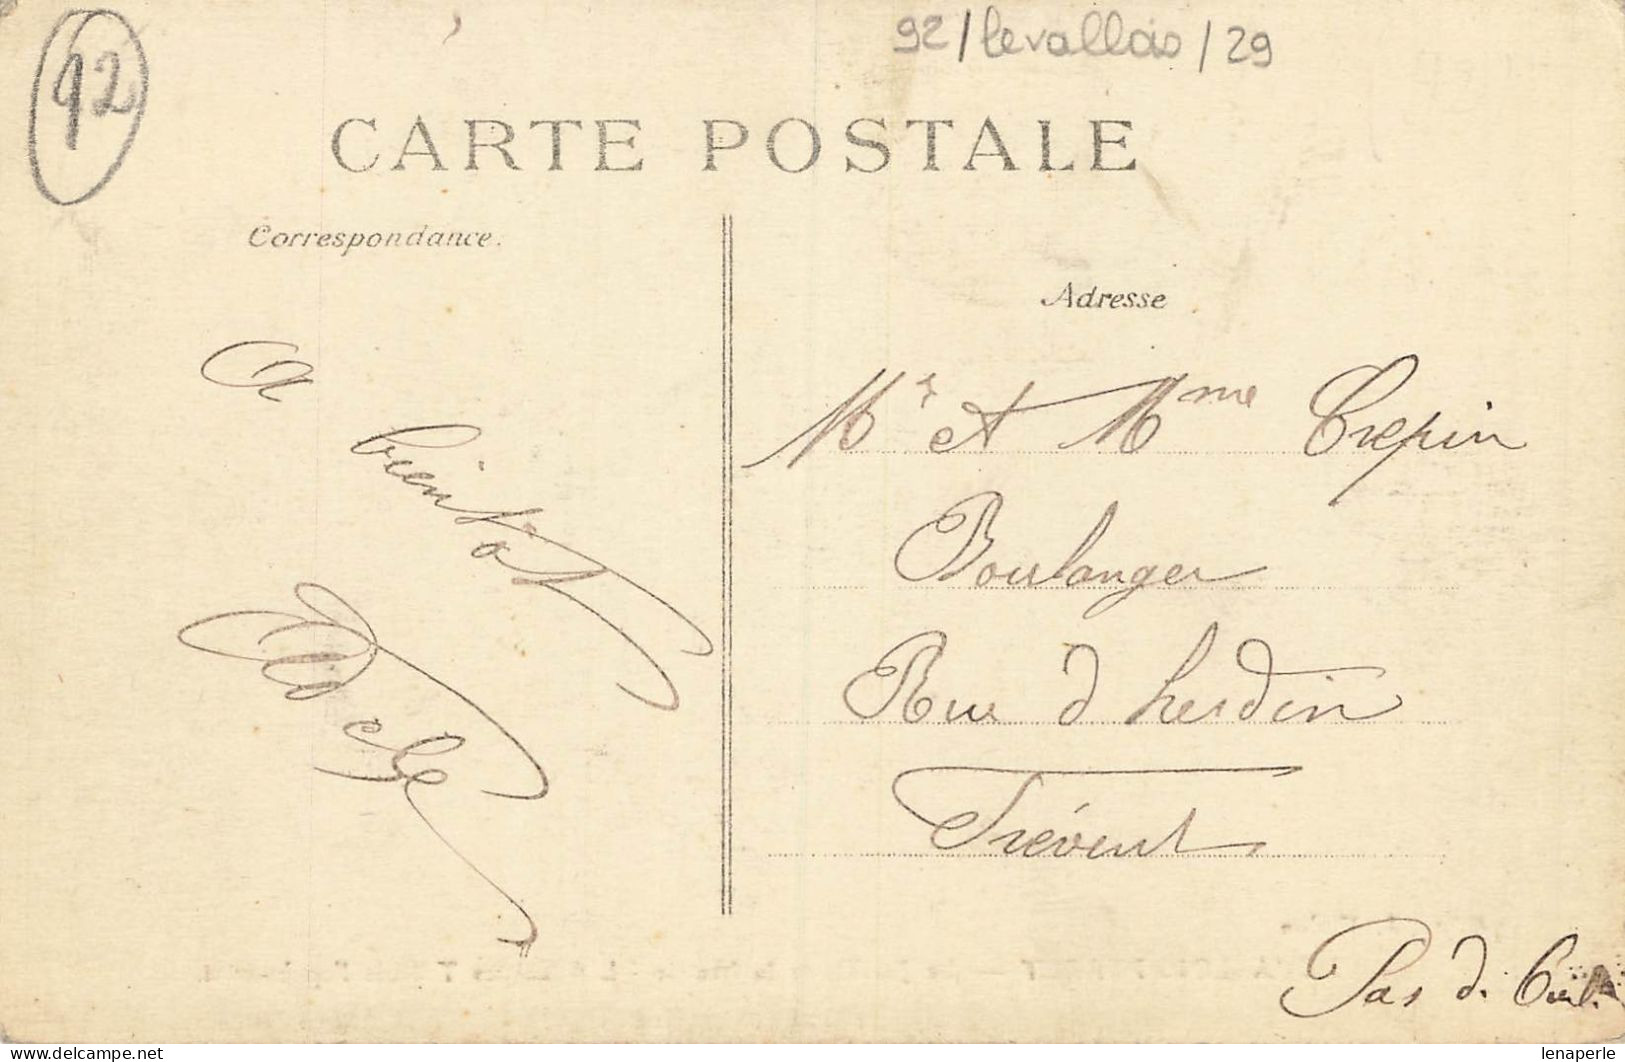 92
92/levallois/29
CARTE POSTALE
Correspondance.
Adresse
A
bientôt
Mr et Mme Crepin
Boulanger
Rue d hesdin
Frévent
Pas d. Cal.
lenaperle